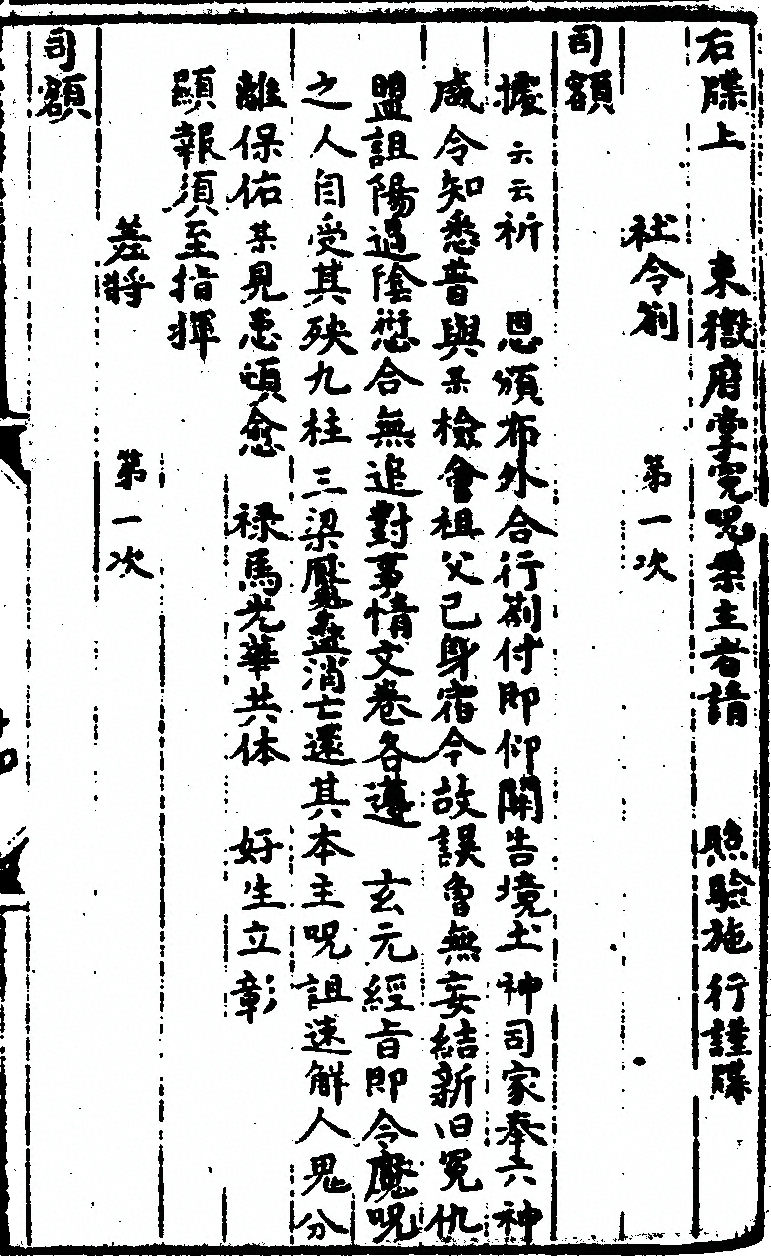 右牒上 東嶽府掌冤呪案主者請 照驗施行謹牒
社令劄 第一次
司額
據云云祈 恩頒布外合行劄付即仰開告境土神司家奉六神
咸令知悉昔與某檢會祖父己身宿今故誤曾無妄結新旧冤仇
盟詛陽過陰愆合無追對事情文卷各遵 玄元經旨即令魔呪
之人自受其殃九柱三梁魘蠱消亡還其本主呪詛速解人鬼分
離保佑某見患頓愈 禄馬光華共体 好生立彰
顯報須至指揮
差將 第一次
司額